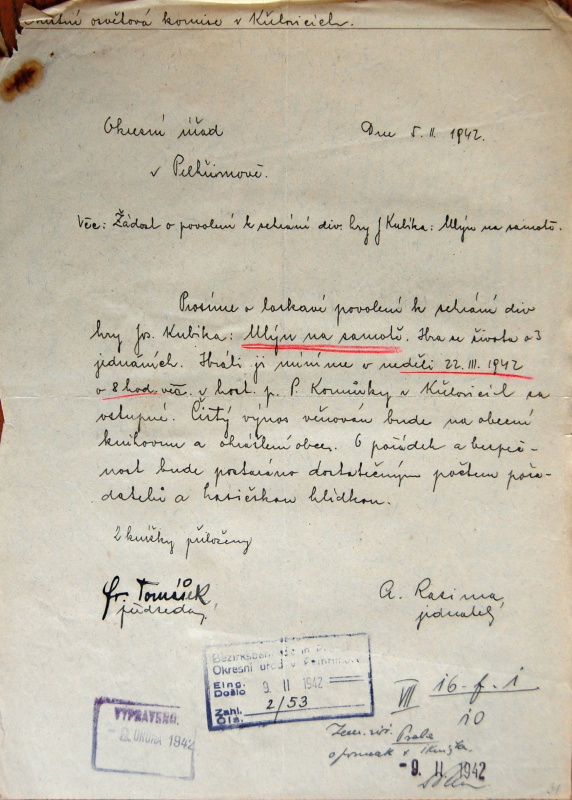 osvětová komise v Křelovicích.
Okresní úřad
Dne 5. II. 1942.
v Pelhřimově.
Věc: Žádost o povolení k sehrání div. hry J Kubíka: Mlýn na samotě.
Prosíme o laskavé povolení k sehrání div
hry Jos. Kubíka: Mlýn na samotě. Hra ze života o 3
jednáních. Hráti ji míníme v neděli 22. III. 1942
o 8 hod. več. v host. p. P. v Křelovicích za
vstupné. Čistý výnos věnován bude na obecní
knihovnu a okrášlení obce. O pořádek a bezpeč-
nost bude postaráno dostatečným počtem pořa-
datelů a hasičskou hlídkou.
2 knížky přiloženy
Fr. Tomášek,
předseda,
A. Rasima,
jednatel,
Okresní úřad v Pelhřimově
Eing.
Došlo 9. II 1942
Zahl.
Čís. 2/53
VYPRAVENO:
ÚNORA 1942
VII 16-f. 1
10
Praha
- 9. II. 1942